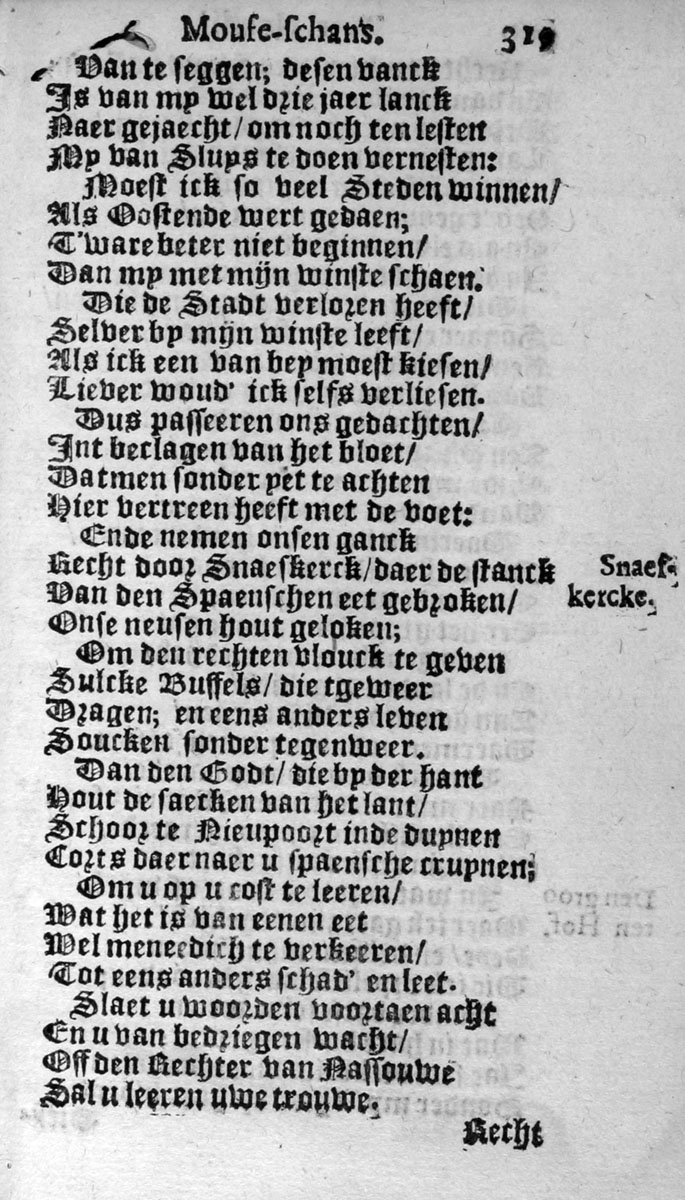 Mouse-schans. 319
Van te seggen; desen vanck
Is van my wel drie jaer lanck
Naer gejaecht/ om noch ten lesten
My van Sluys te doen vernesten:
Moest ick so veel Steden winnen/
Als Oostende wert gedaen;
T'ware beter niet beginnen/
Dan my met mijn winste schaen.
Die de Stadt verloren heeft/
Selver by mijn winste leeft/
Als ick een van bey moest kiesen/
Liever woud' ick selfs verliesen.
Dus passeeren ons gedachten/
Int beclagen van het bloet/
Datmen sonder yet te achten
Hier vertreen heeft met de voet:
Ende nemen onsen ganck
Recht door Snaeskerck/ daer de stanck
Snaes-
Van den Spaenschen eet gebroken/
kercke.
Onse neusen hout geloken;
Om den rechten vlouck te geven
Sulcke Buffels/ die tgeweer
Dragen; en eens anders leven
Soucken sonder tegenweer.
Dan den Godt/ die by der hant
Hout de saecken van het lant/
Schoor te Nieupoort inde duynen
Corts daer naer u spaensche cruynen;
Om u op u cost te leeren/
Wat het is van eenen eet
Wel meneedich te verkeeren/
Tot eens anders schad' en leet.
Slaet u woorden voortaen acht
En u van bedriegen wacht/
Off den Rechter van Nassouwe
Sal u leeren uwe trouwe.
Recht